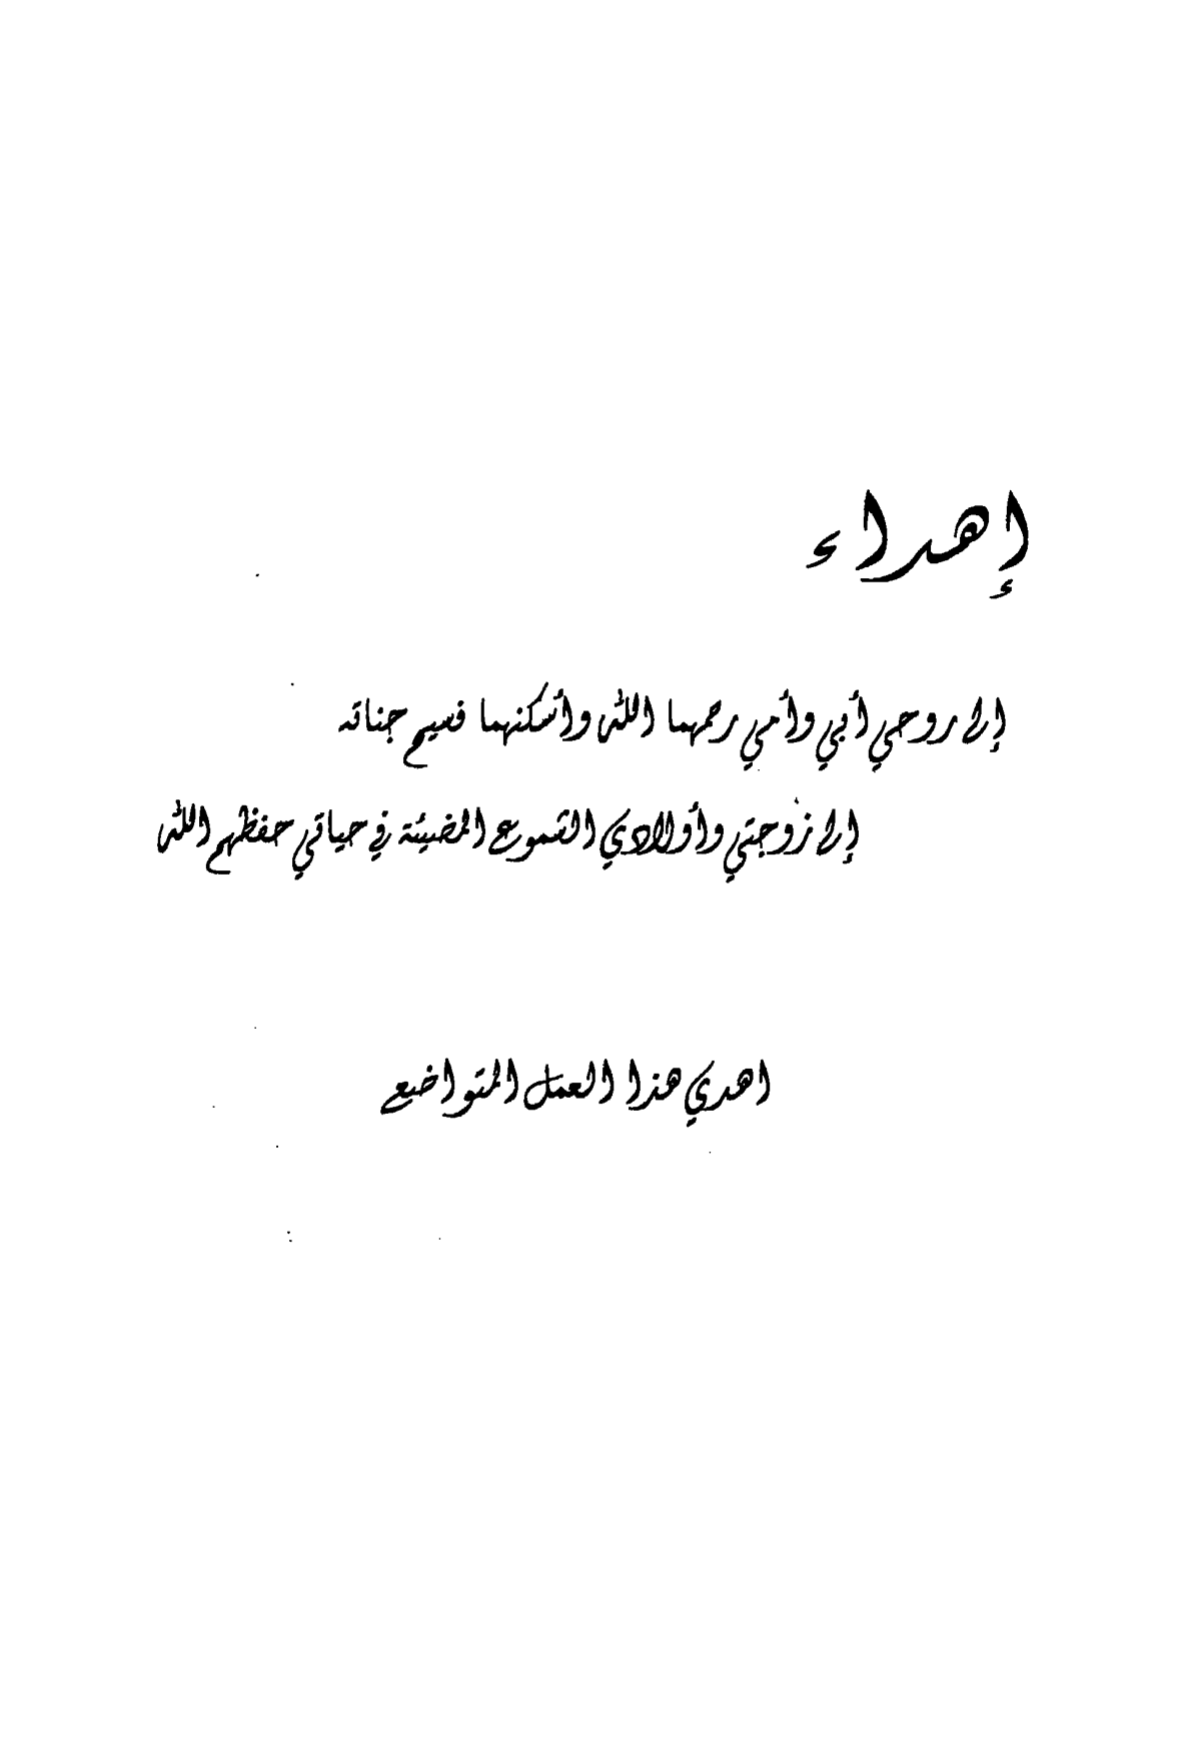 إهداء
إلى روحي أبي وأمي رحمهما الله وأسكنهما فسيح جناته
إلى زوجتي وأولادي الشموع المضيئة في حياتي حفظهم الله
اهدي هذا العمل المتواضع